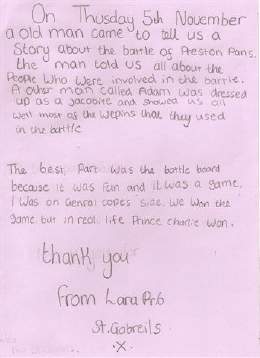 On Thusday 5th November
a old man came to tell us a
Story about the battle of Preston Pans.
the man told us all about the
People Who Were involved in the battle.
A other man called Adam was dressed
up as a Jacobite and showed us all
well most of the wepins that they used
in the battle
The best Part was the battle board
because it was fun and it was a game.
I was on Genral copes side. We won the
Game but in real life Prince charlie won.
thank you
From Lara Pr.6
St.Gabreils
.X.